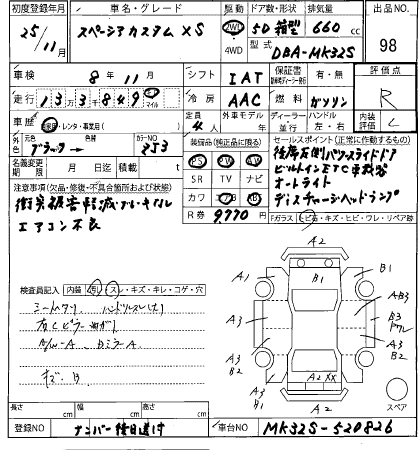 初度登録年月 車名・グレード 駆動 ドア数・形状 排気量 出品NO.
25/11月 スペーシアカスタム XS 2WD 4WD 5D 箱型 660cc 98
型式 DBA-MK32S
車検 8年11月 シフト IAT 保証書 有・無 評価点 R
走行 133849 マイル 冷房 AAC 燃料 ガソリン
車歴 自家・レンタ・事業用( ) 定員 4人 外車モデル年 ディーラー・並行 ハンドル 左・右 内装評価 C
外色 元色 ブラック カラーNO ZJ3 装備品(純正品に限る) セールスポイント(正常に作動するもの)
名義変更期限 月 日迄 積載 t PS PW
後席左側パワースライドドア
SR TV ナビ ビルトインETC車載器
注意事項(欠品・修復・不具合箇所および状態) オートライト
衝突被害軽減ブレーキナル カワ ディスチャージヘッドランプ
エアコン不良 R券 9,770 Fガラス ヒ石・キズ・ヒビ・ワレ・リペア跡
検査員記入 内装 汚・スレ・キズ・キレ・コゲ・穴
A2
A1 B1 B1
AB3
A3 B3
A3
A3 B2 A3 B2
A3 B1 A2 XX A2
スペア
長さ cm 幅 cm 高さ cm
登録NO ナンバー後日送付 車台NO MK32S-520826